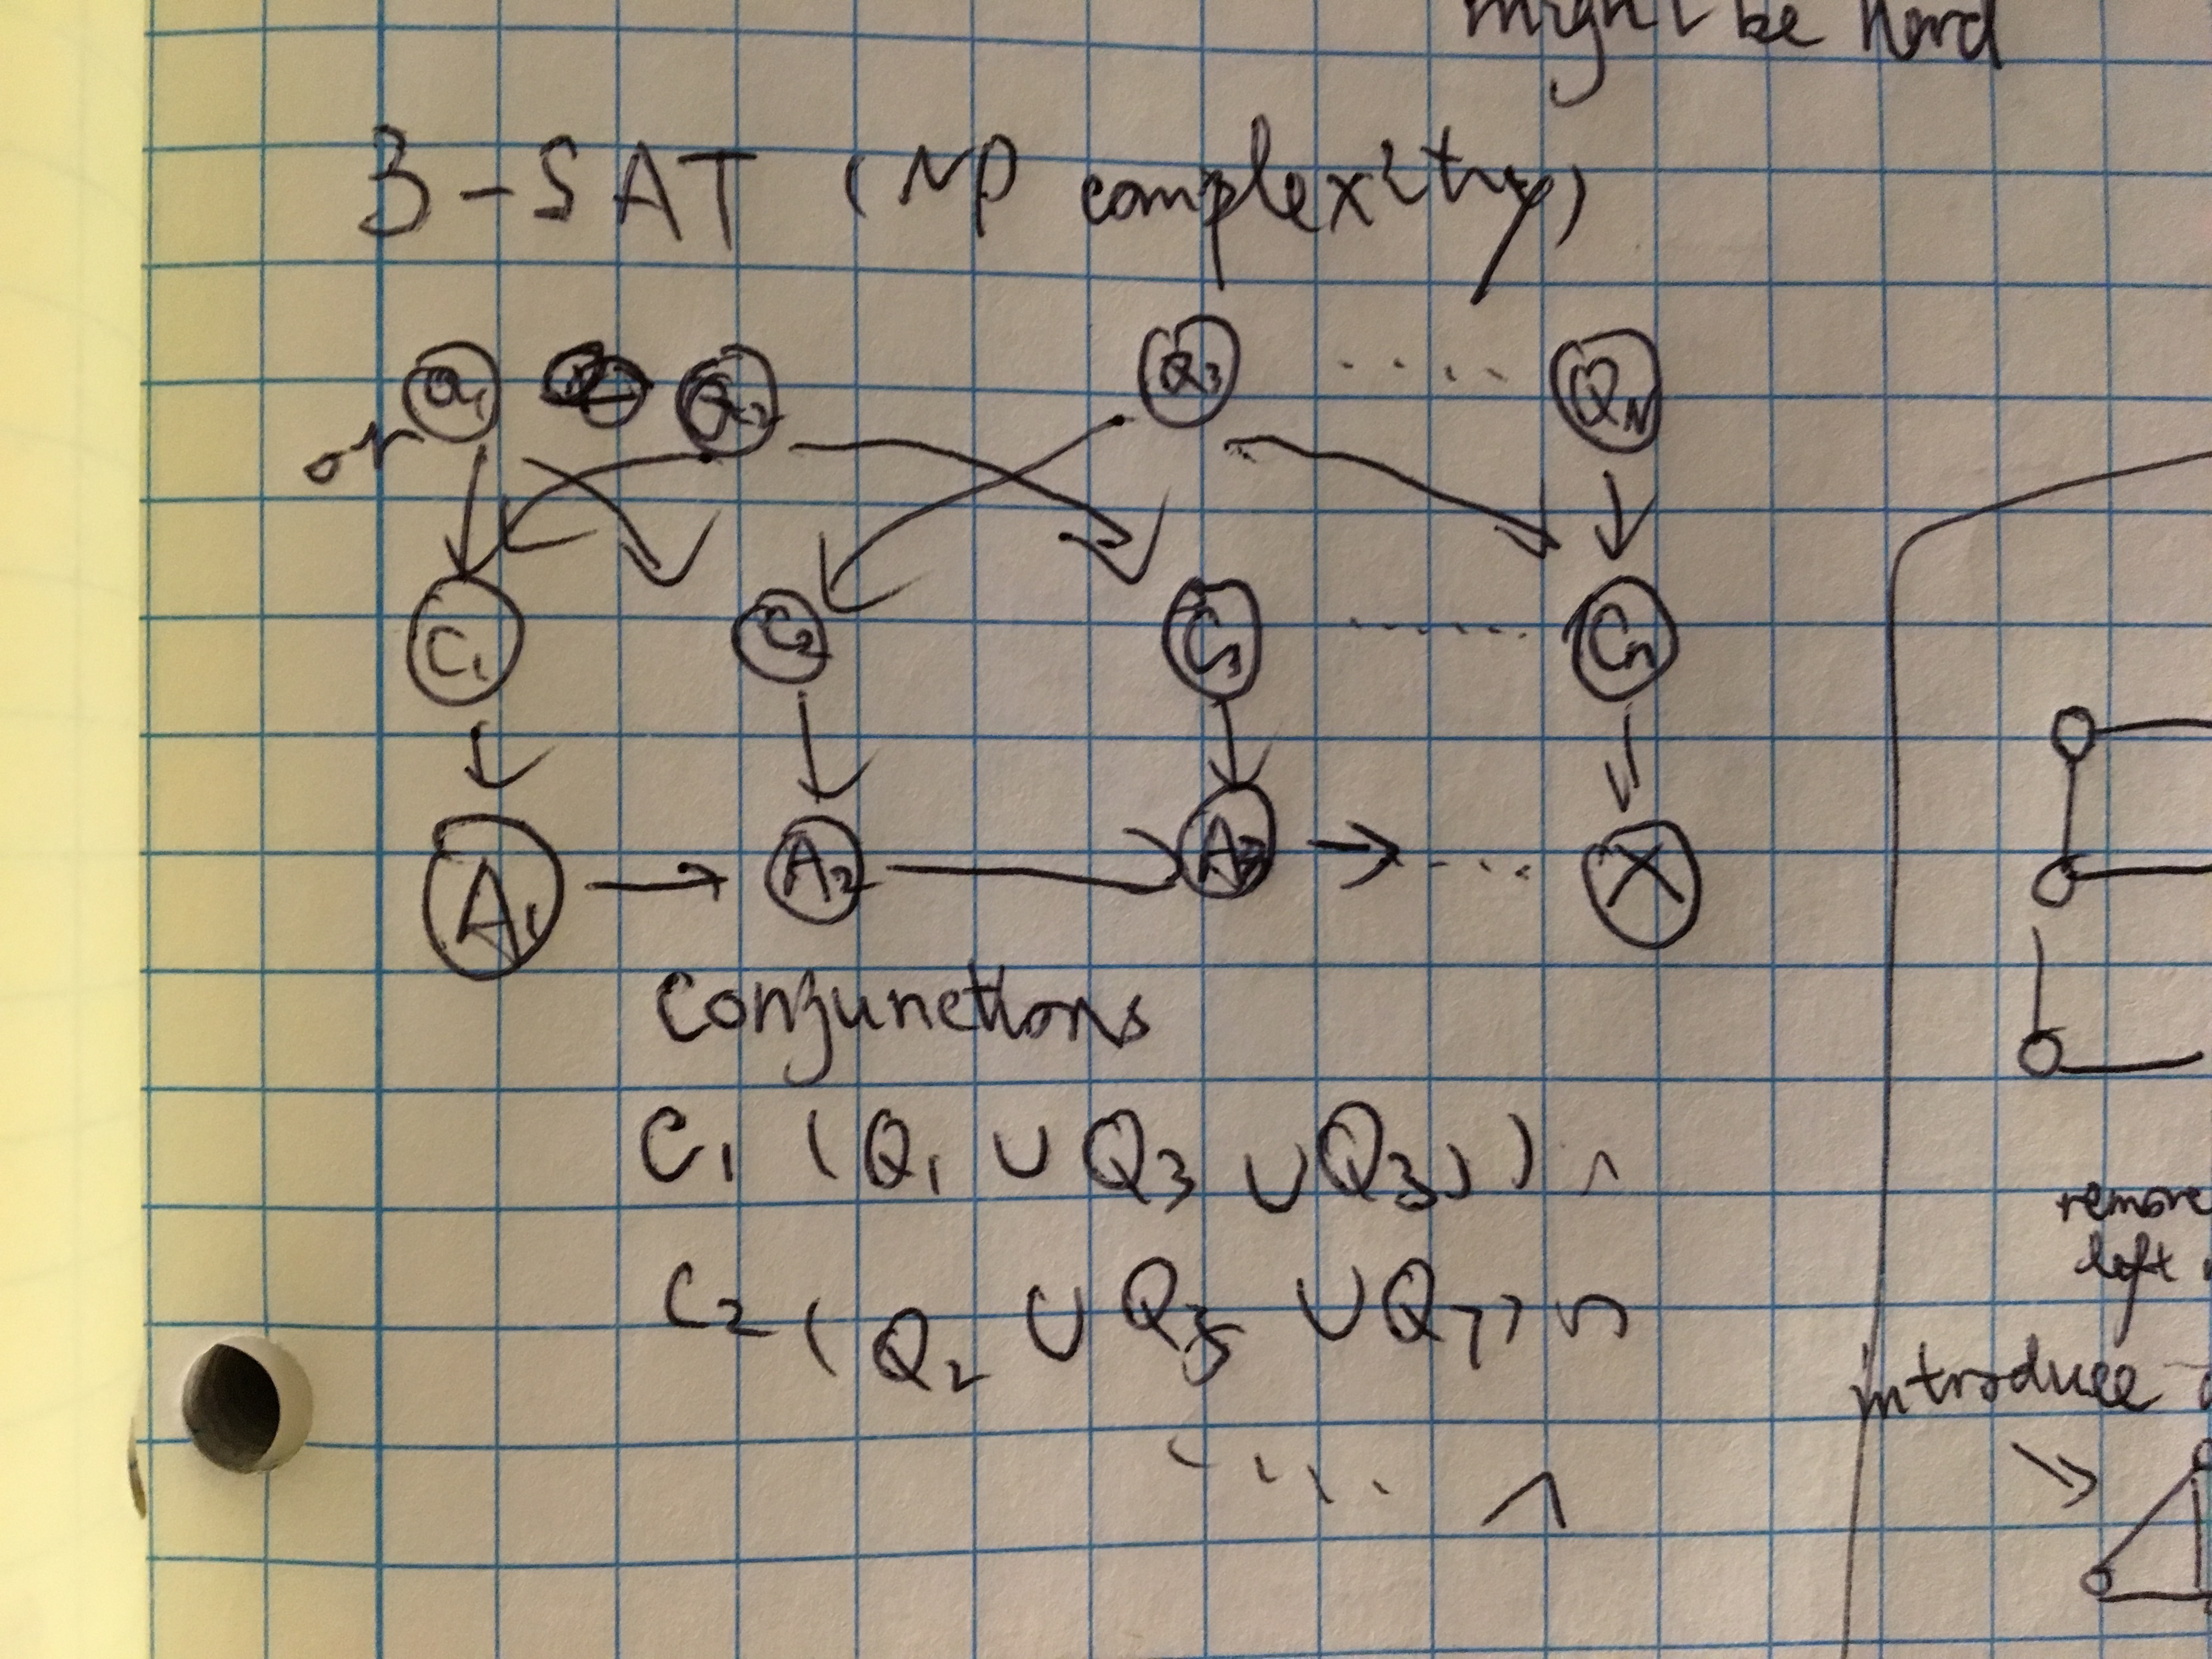 might be hard
3-SAT (NP complexity)
Q1 Q2 Q3 ..... QN
or
C1 C2 C3 ...... Cn
A1 → A2 → A3 → .... X
Conjunctions
C1 (Q1 ∪ Q3 ∪ Q3)) ∧
C2 (Q2 ∪ Q5 ∪ Q7) ∩
.... ∧
remove
left
introduce